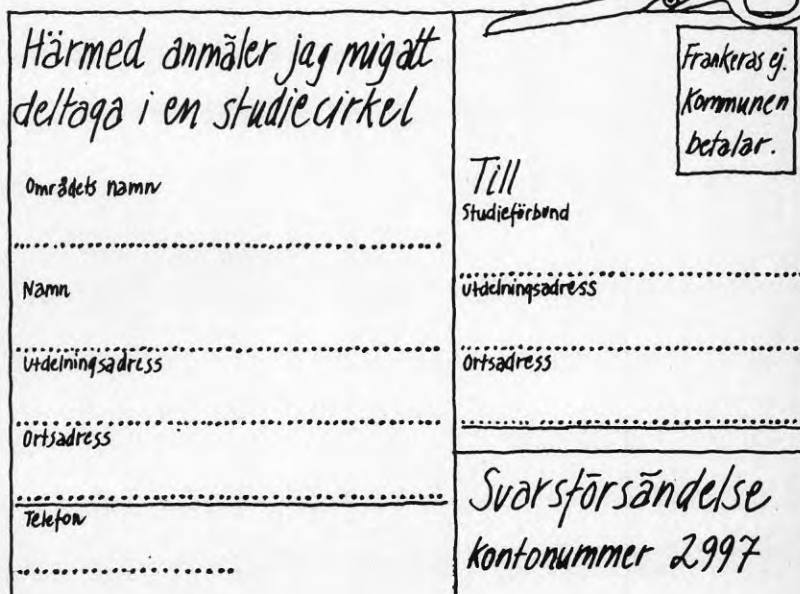 Härmed anmäler jag mig att
deltaga i en studiecirkel
Områdets namn
Namn
Utdelningsadress
Ortsadress
Telefon
Frankeras ej.
Kommunen
betalar.
Till
Studieförbund
Utdelningsadress
Ortsadress
Svarsförsändelse
Kontonummer 2997